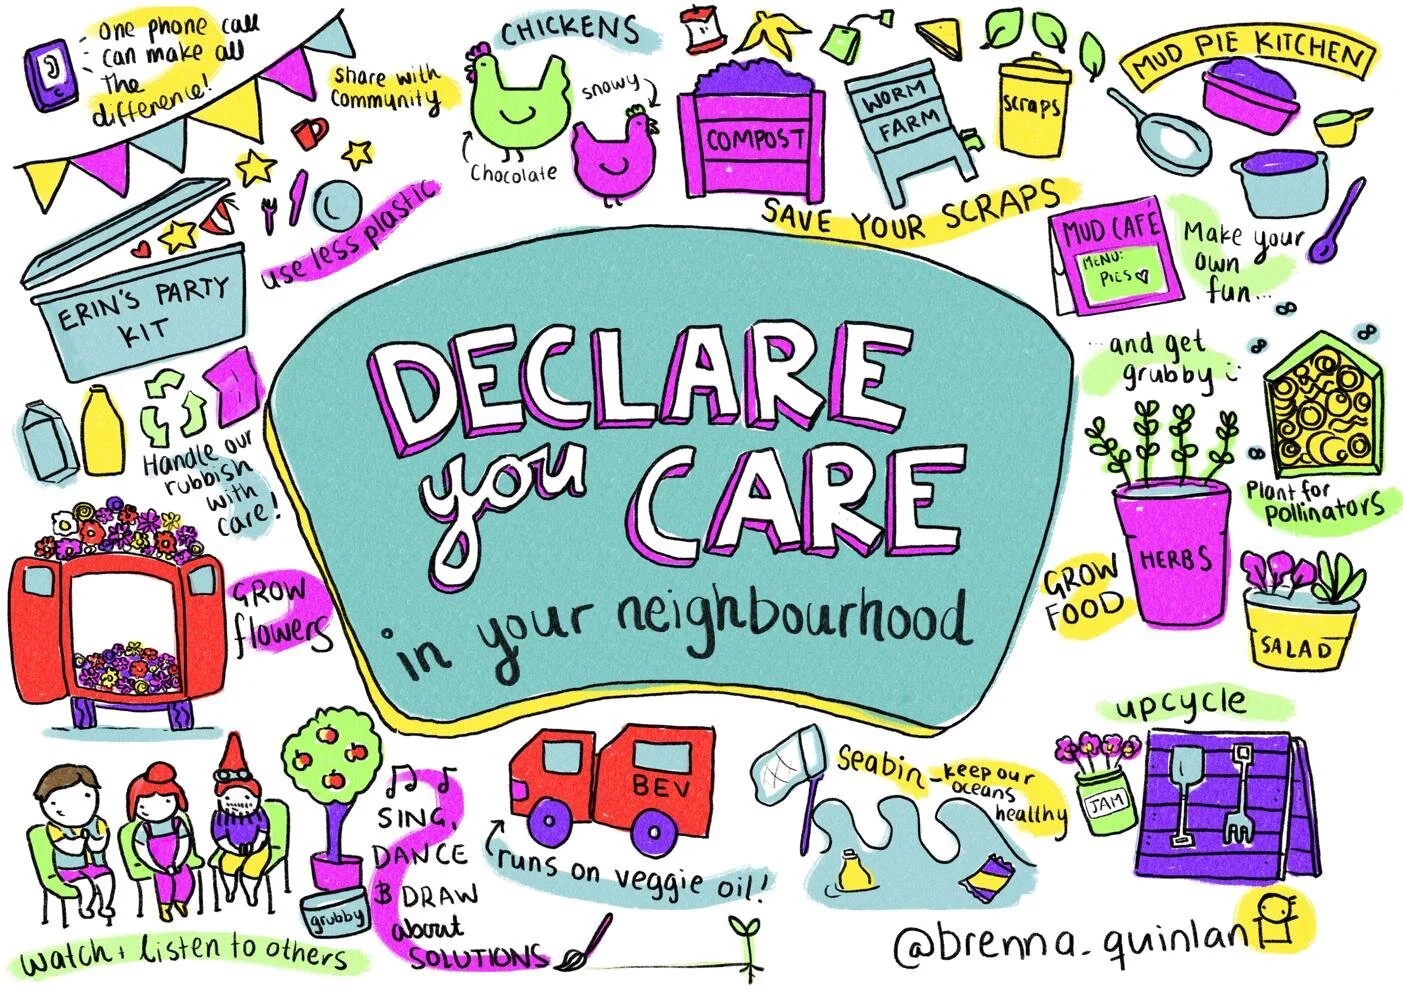 one phone call
can make all
The
difference!
share with
community
use less plastic
ERIN'S PARTY
KIT
CHICKENS
snowy
Chocolate
COMPOST
WORM
FARM
scraps
SAVE YOUR SCRAPS
MUD PIE KITCHEN
MUD CAFÉ
MENU:
PIES
Make your
own
fun...
...and get
grubby
DECLARE
you CARE
in your neighbourhood
Handle our
rubbish
with
care!
GROW
flowers
Plant for
pollinators
HERBS
GROW
FOOD
SALAD
upcycle
JAM
watch + listen to others
grubby
SING,
DANCE
& DRAW
about
SOLUTIONS
BEV
runs on veggie oil!
Seabin - keep our
oceans
healthy
@brenna_quinlan